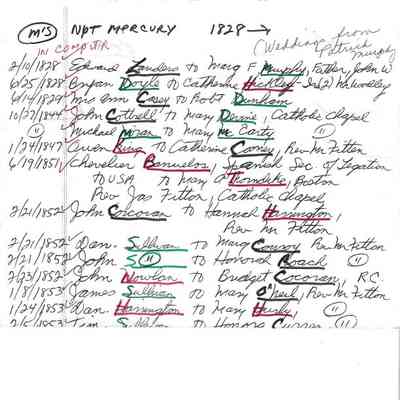 M'S NPT MERCURY 1828 →
(Weddings from
Patrick
Murphy
IN COMPUTER
2/10/1828 Edward Landers to Marg F Murphy, Father, John W
6/25/1828 Bryan Doyle to Catherine Hickley - Ir(2)
6/14/1829 Mrs Ann Casey to Robt Dunham
10/27/1844 John Cottrell to Mary Dennie, Catholic Chapel
" Michael Moran to Mary McCarty "
1/24/1847 Owen King to Catherine Carney, Rev Mr Fitton
6/19/1851 Chevelier Banuelos, Spanish Sec. of Legation
to USA to Mary A Thorndike, Boston
Rev Jas Fitton, Catholic Chapel
2/21/1852 John Corcoran to Hannah Harrington,
Rev Mr Fitton
2/21/1852 Dan. Sullivan to Marg Conroy Rev Mr Fitton
2/21/1852 John S " to Honorah Roach "
2/23/1852 John Nowlan to Bridget Corcoran, R.C.
1/8/1853 James Sullivan to Mary O'Neil, Rev Mr Fitton
1/24/1853 Dan. Harrington to Mary Hurly, "
2/5/1853 Tim. Sullivan to Honora Curran "